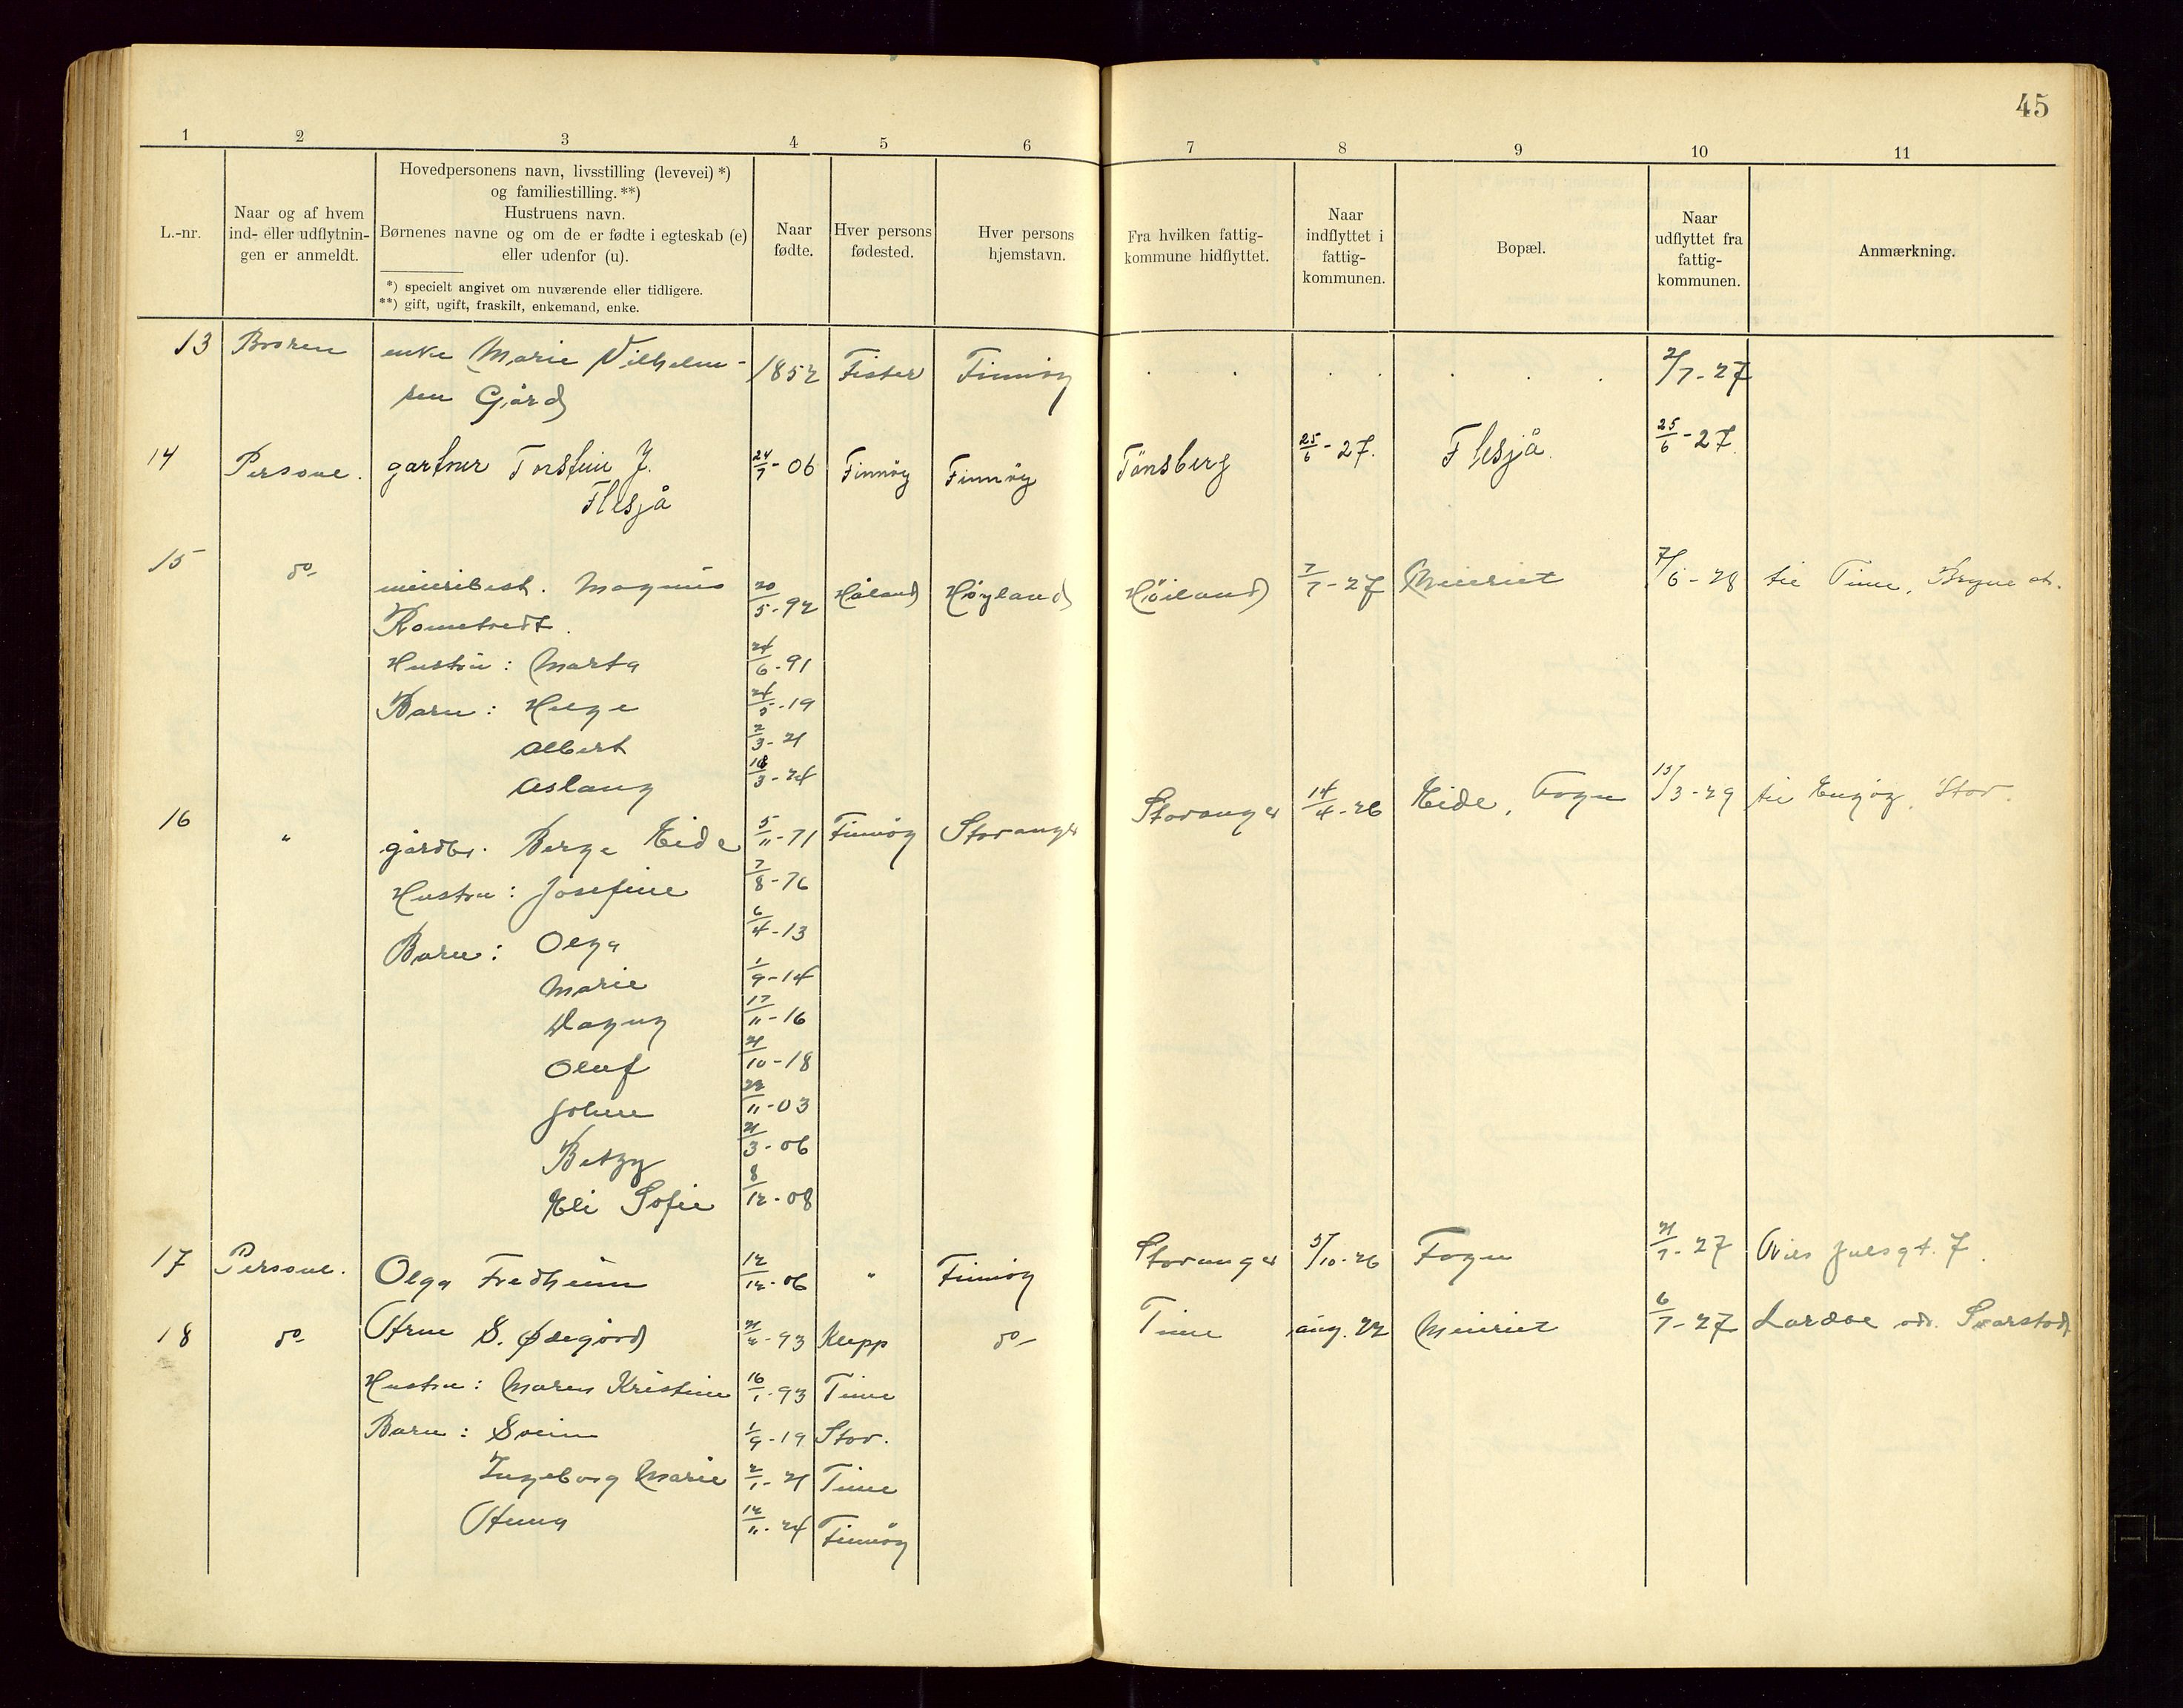 45
1 2 3 4 5 6 7 8 9 10 11
L.-nr.
Naar og af hvem
ind- eller udflytnin-
gen er anmeldt.
Hovedpersonens navn, livsstilling (levevei) *)
og familiestilling. **)
Hustruens navn.
Børnenes navne og om de er fødte i egteskab (e)
eller udenfor (u).
*) specielt angivet om nuværende eller tidligere.
**) gift, ugift, fraskilt, enkemand, enke.
Naar
fødte.
Hver persons
fødested.
Hver persons
hjemstavn.
Fra hvilken fattig-
kommune hidflyttet.
Naar
indflyttet i
fattig-
kommunen.
Bopæl.
Naar
udflyttet fra
fattig-
kommunen.
Anmærkning.
13 Broren enke Marie Vilhelm- 1852 Fister Finnøy . . . . . . . 2/7-27
sen Gård
14 Persone. gartner Torstein J. 24/7-06 Finnöy Finnöy Tönsberg 25/6-27. Flesjå. 25/6-27.
Flesjå
15 do meieribest. Magnus 20/5-92 Håland Høyland Höiland 7/7-27 Meieriet 7/6-28 til Time, Bryne st.
Rometvedt.
Hustru: Marta 24/6-91
Barn: Helge 24/5-19
Albert 2/3-21
Aslaug 18/3-24
16 " gårdbr. Berge Eide 5/11-71 Finnöy Stavanger Stavanger 14/4-26 Eide, Fogn 15/3-29 til Engøy, Stav.
Hustru: Josefine 7/8-76
Barn: Olga 6/4-13
Marie 1/9-14
Dagny 17/11-16
Oluf 21/10-18
Johne 22/11-03
Betzy 21/3-06
Eli Sofie 8/12-08
17 Persone. Olga Fredheim 12/12-06 " Finnöy Stavanger 5/10-26 Fogn 21/7-27 Nils Juelsgt. 7.
18 do Arne S. Ødegård 21/2-93 Klepp do Time aug. 22 Meieriet 6/7-27
Hustru: Maren Kristine 16/1-93 Time
Barn: Svein 1/9-19 Stav.
Ingeborg Marie 2/1-21 Time
Anna 12/11-24 Finnöy